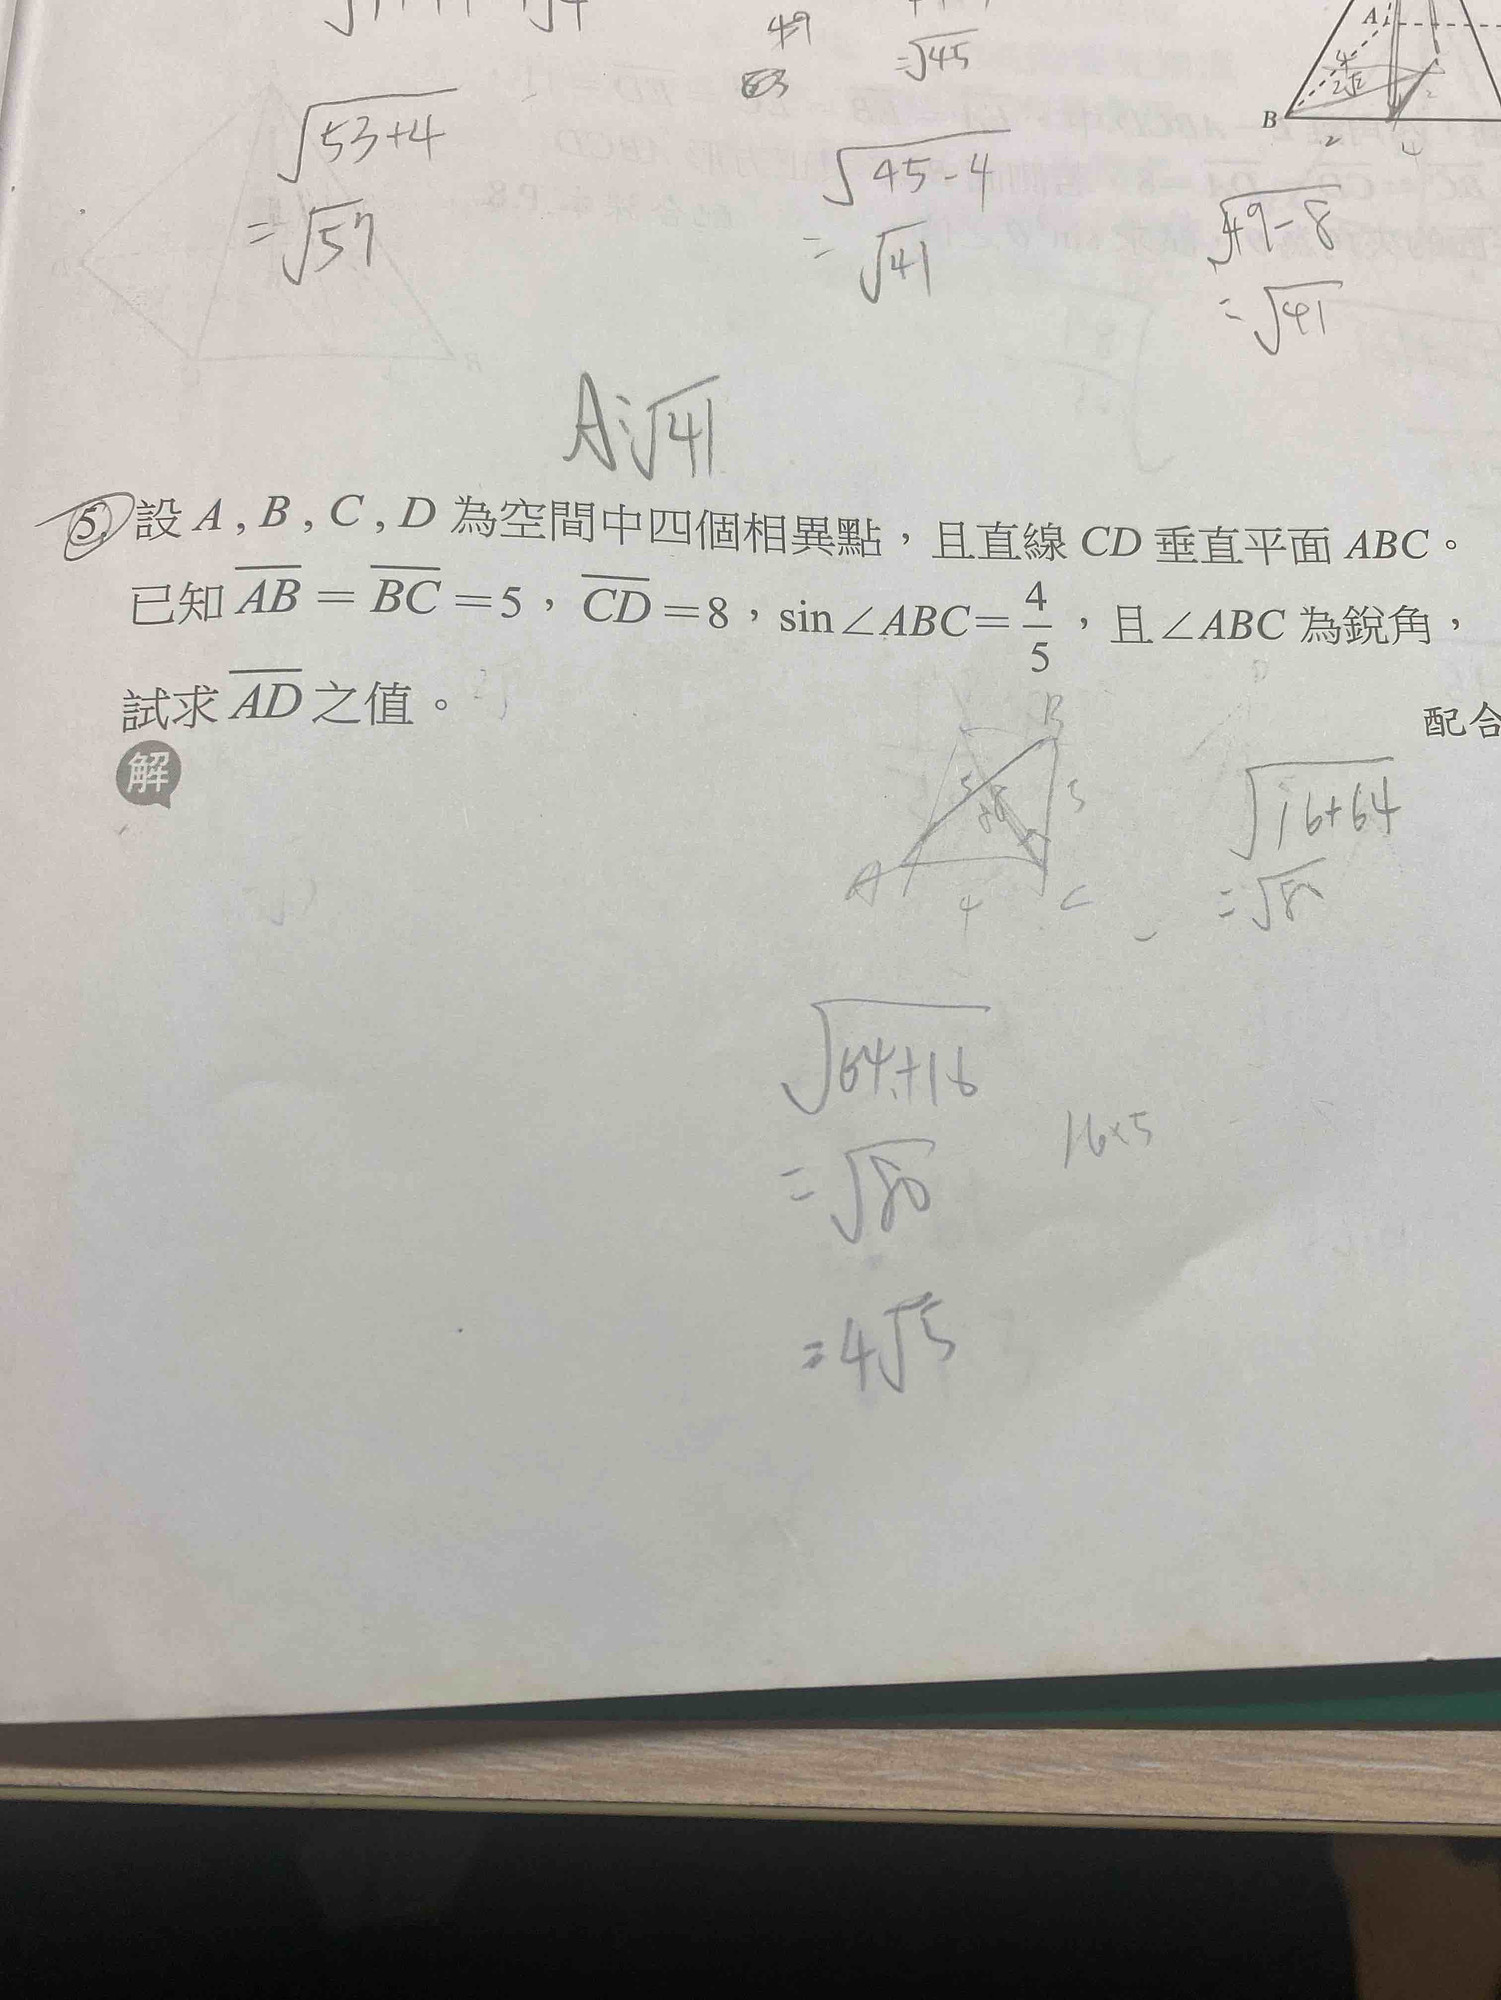 49
=√45
A
B
2
4
√53+4
=√57
√45-4
=√41
√49-8
=√41
A:√41
5. 設 A , B , C , D 為空間中四個相異點，且直線 CD 垂直平面 ABC。
已知 AB = BC = 5，CD = 8，sin∠ABC = 4/5，且∠ABC 為銳角，
試求 AD 之值。
配合
解
B
5
A
4
C
√16+64
=√80
√64+16
=√80
16×5
=4√5